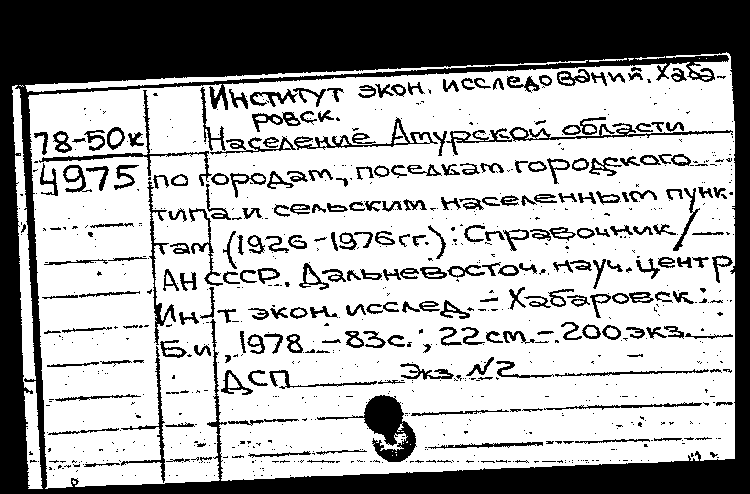 Институт экон. исследований. Хаба-
ровск.
78-50к Население Амурской области
4975 по городам, поселкам городского
типа и сельским населенным пунк-
там (1926-1976гг.): Справочник /
АН СССР. Дальневосточ. науч. центр,
Ин-т экон. исслед. - Хабаровск:
Б.и., 1978. - 83с.; 22см. - 200экз.
ДСП Экз. №2